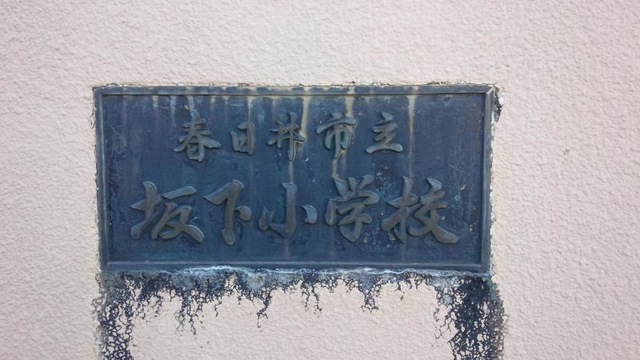 春日井市立
坂下小学校